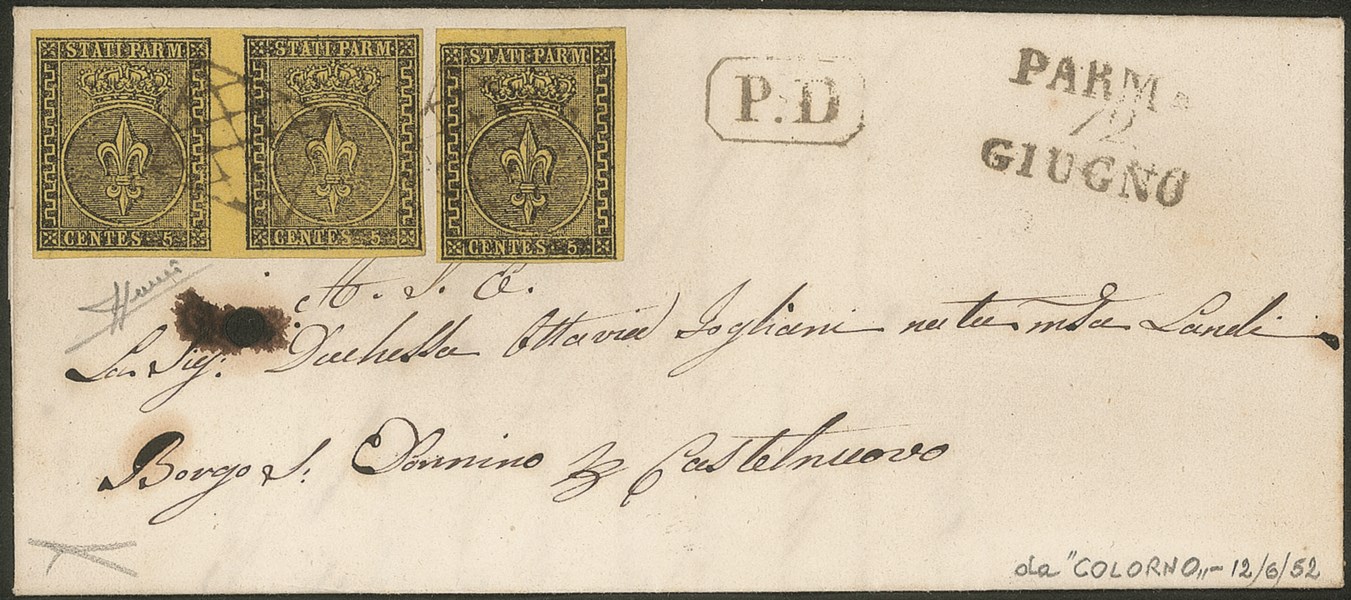 STATI PARM STATI PARM STATI PARM
CENTES 5 CENTES 5 CENTES 5
P.D
PARMA
12
GIUGNO
A. S. E.
La Sig: Duchessa Ottavia nata Landi
Borgo S. Donnino Castelnuovo
da "COLORNO" - 12/6/52